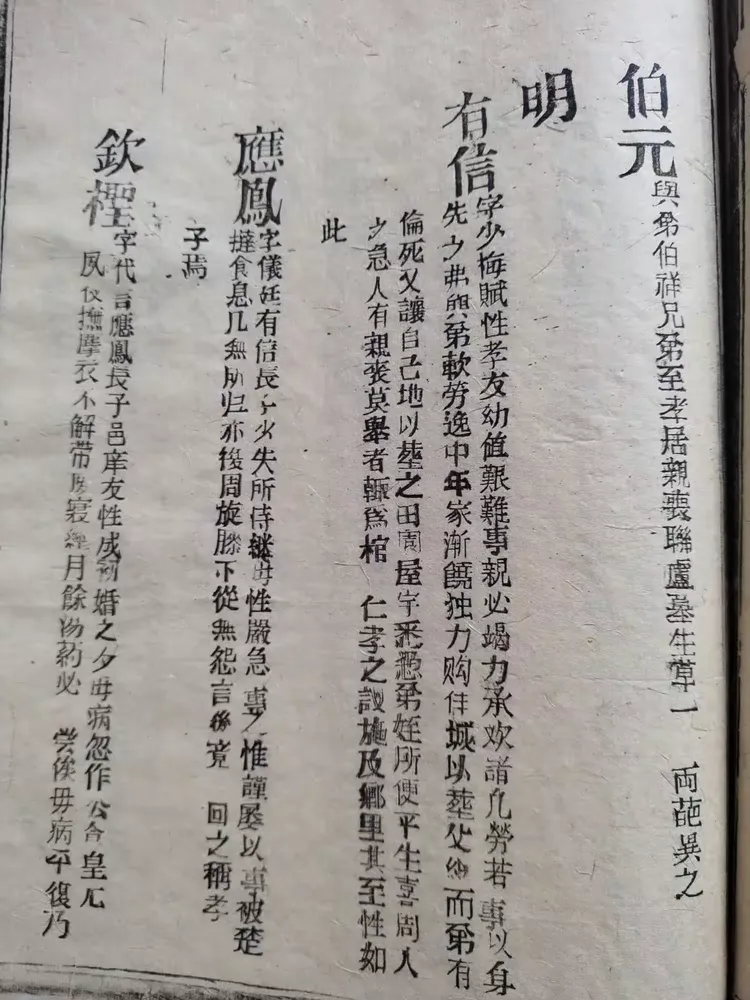 伯元與弟伯祥兄弟至孝居親喪聯廬墓生草一 兩葩異之
明
有信字少梅賦性孝友幼值艱難事親必竭力承欢諸凡勞若事以身
先之弗與弟軟勞逸中年家漸饒独力购佳城以塟父 而弟有
倫死又讓自己地以塟之田園屋宇悉 弟姪所便平生喜周人
之急人有親喪莫舉者輒爲棺 仁孝之 施及鄉里其至性如
此
應鳳字儀廷有信長子少失所恃継母性嚴急事之惟謹屡以事被楚
撻食息几無所归亦後周旋膝下從無怨言後竟 回之稱孝
子焉
欽 字代言應鳳長子邑庠友性成初婚之夕母病忽作公含皇
夙夜撫摩衣不解帶 寢 月餘湯葯必 尝俟母病平復乃